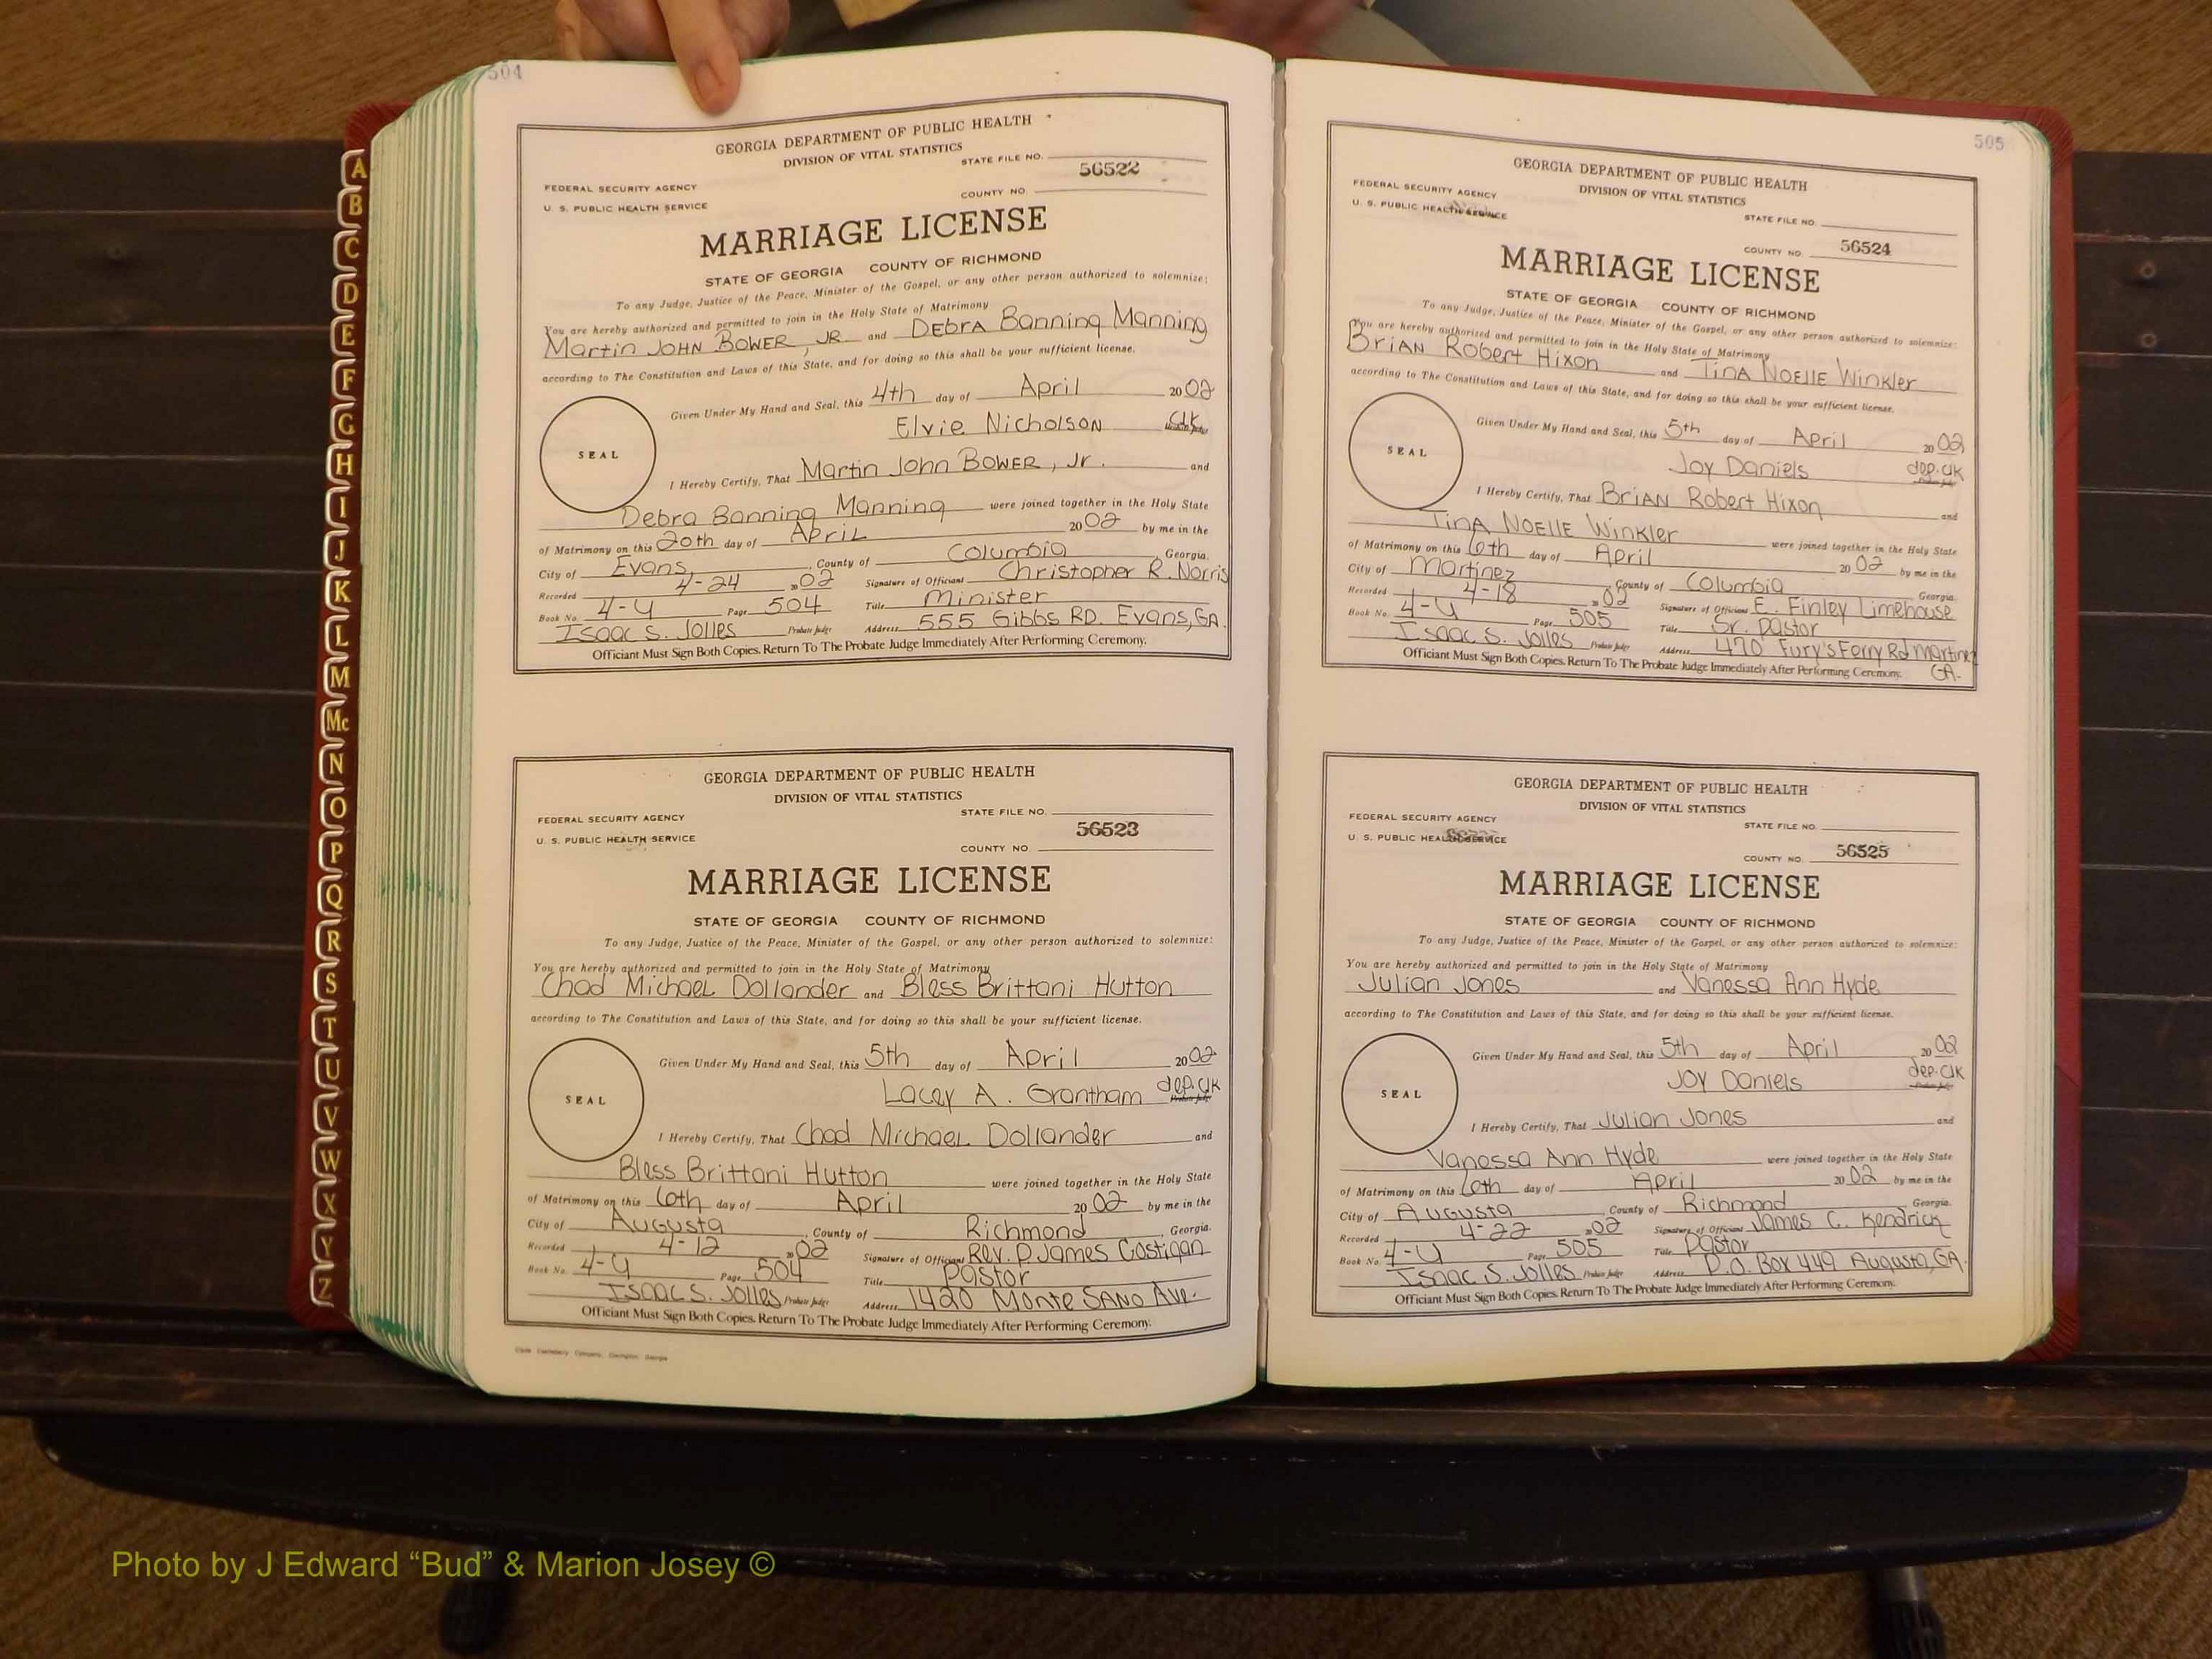 504
GEORGIA DEPARTMENT OF PUBLIC HEALTH
DIVISION OF VITAL STATISTICS
STATE FILE NO.
56522
FEDERAL SECURITY AGENCY
U. S. PUBLIC HEALTH SERVICE
COUNTY NO.
MARRIAGE LICENSE
STATE OF GEORGIA COUNTY OF RICHMOND
To any Judge, Justice of the Peace, Minister of the Gospel, or any other person authorized to solemnize:
You are hereby authorized and permitted to join in the Holy State of Matrimony
Martin JOHN BOWER, JR and DEbra Banning Manning
according to The Constitution and Laws of this State, and for doing so this shall be your sufficient license.
Given Under My Hand and Seal, this 4th day of April 2002
Elvie Nicholson Clk
SEAL
I Hereby Certify, That Martin John BOWER, Jr. and
Debra Banning Manning were joined together in the Holy State
of Matrimony on this 20th day of April 2002 by me in the
City of Evans, County of Columbia, Georgia.
Recorded 4-24 2002 Signature of Officiant Christopher R. Norris
Book No. 4-U Page 504 Title Minister
Isaac S. Jolles Probate Judge Address 555 Gibbs RD. Evans, GA.
Officiant Must Sign Both Copies. Return To The Probate Judge Immediately After Performing Ceremony.
GEORGIA DEPARTMENT OF PUBLIC HEALTH
DIVISION OF VITAL STATISTICS
STATE FILE NO.
56523
FEDERAL SECURITY AGENCY
U. S. PUBLIC HEALTH SERVICE
COUNTY NO.
MARRIAGE LICENSE
STATE OF GEORGIA COUNTY OF RICHMOND
To any Judge, Justice of the Peace, Minister of the Gospel, or any other person authorized to solemnize:
You are hereby authorized and permitted to join in the Holy State of Matrimony
Chad Michael Dollander and Bless Brittani Hutton
according to The Constitution and Laws of this State, and for doing so this shall be your sufficient license.
Given Under My Hand and Seal, this 5th day of April 2002
Lacey A. Grantham dep. clk
Probate Judge
SEAL
I Hereby Certify, That Chad Michael Dollander and
Bless Brittani Hutton were joined together in the Holy State
of Matrimony on this 6th day of April 2002 by me in the
City of Augusta, County of Richmond Georgia.
Recorded 4-12 2002 Signature of Officiant Rev. P. James Costigan
Book No. 4-U Page 504 Title Pastor
Isaac S. Jolles Probate Judge Address 1420 Monte SANO Ave.
Officiant Must Sign Both Copies. Return To The Probate Judge Immediately After Performing Ceremony.
505
GEORGIA DEPARTMENT OF PUBLIC HEALTH
DIVISION OF VITAL STATISTICS
FEDERAL SECURITY AGENCY
U. S. PUBLIC HEALTH SERVICE
STATE FILE NO.
COUNTY NO. 56524
MARRIAGE LICENSE
STATE OF GEORGIA COUNTY OF RICHMOND
To any Judge, Justice of the Peace, Minister of the Gospel, or any other person authorized to solemnize:
You are hereby authorized and permitted to join in the Holy State of Matrimony
BriAN Robert Hixon and TinA NOElle Winkler
according to The Constitution and Laws of this State, and for doing so this shall be your sufficient license.
Given Under My Hand and Seal, this 5th day of April 2002
Joy Daniels dep. clk
Probate Judge
SEAL
I Hereby Certify, That BriAN Robert Hixon and
TinA NOElle Winkler were joined together in the Holy State
of Matrimony on this 6th day of April 2002 by me in the
City of Martinez, County of Columbia Georgia.
Recorded 4-18 2002 Signature of Officiant E. Finley Limehouse
Book No. 4-U Page 505 Title Sr. Pastor
Isaac S. Jolles Probate Judge Address 470 Fury's Ferry Rd Martinez
GA.
Officiant Must Sign Both Copies. Return To The Probate Judge Immediately After Performing Ceremony.
GEORGIA DEPARTMENT OF PUBLIC HEALTH
DIVISION OF VITAL STATISTICS
FEDERAL SECURITY AGENCY
U. S. PUBLIC HEALTH SERVICE
STATE FILE NO.
COUNTY NO. 56525
MARRIAGE LICENSE
STATE OF GEORGIA COUNTY OF RICHMOND
To any Judge, Justice of the Peace, Minister of the Gospel, or any other person authorized to solemnize:
You are hereby authorized and permitted to join in the Holy State of Matrimony
Julian Jones and Vanessa Ann Hyde
according to The Constitution and Laws of this State, and for doing so this shall be your sufficient license.
Given Under My Hand and Seal, this 5th day of April 2002
Joy Daniels dep. clk
Probate Judge
SEAL
I Hereby Certify, That Julian Jones and
Vanessa Ann Hyde were joined together in the Holy State
of Matrimony on this 6th day of April 2002 by me in the
City of Augusta, County of Richmond Georgia.
Recorded 4-22 2002 Signature of Officiant James C. Kendrick
Book No. 4-U Page 505 Title Pastor
Isaac S. Jolles Probate Judge Address P.O. Box 449 Augusta, GA.
Officiant Must Sign Both Copies. Return To The Probate Judge Immediately After Performing Ceremony.
A
B
C
D
E
F
G
H
I
J
K
L
M
Mc
N
O
P
Q
R
S
T
U
V
W
X
Y
Z
Photo by J Edward “Bud” & Marion Josey ©